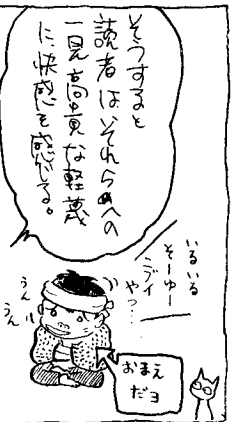 そうすると
読者は、それらへの
一見高尚な軽蔑
に、快感を感じる。
いるいる
そーゆー
ミブイ
やつ…
うん
うん
おまえ
だヨ